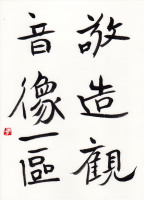 敬造觀
音像一區